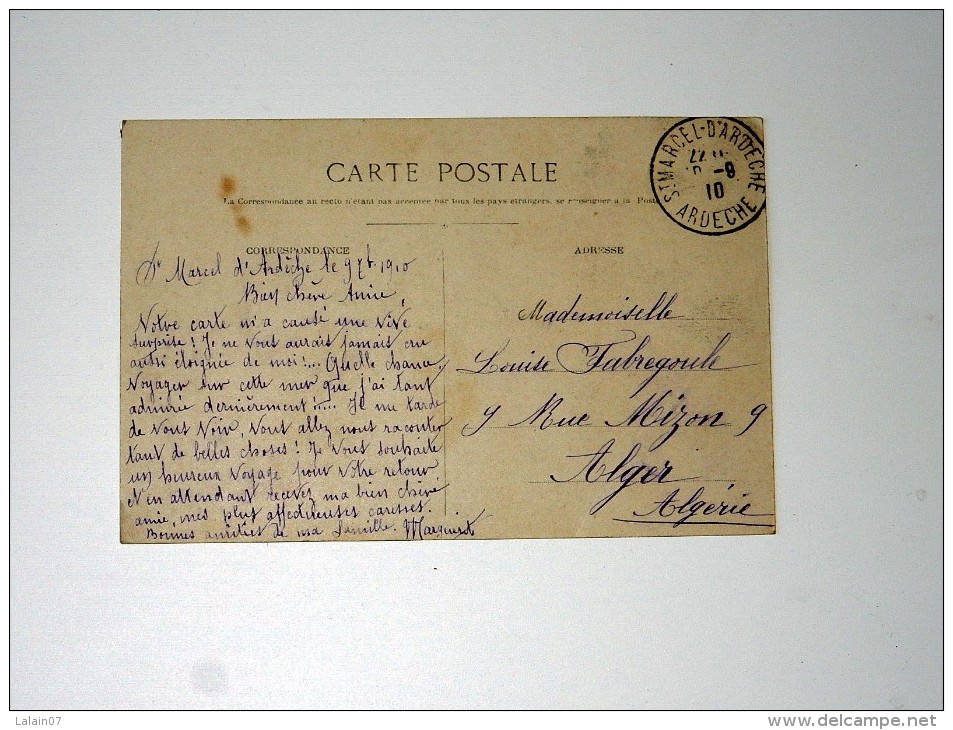 CARTE POSTALE
La Correspondance au recto n'étant pas acceptée par tous les pays étrangers, se renseigner à la Poste
CORRESPONDANCE
ADRESSE
St MARCEL-D'ARDÈCHE
-9
10
ARDÈCHE
St Marcel d'Ardèche le 9 7b 1910
Bien chère Amie,
Votre carte m'a causé une vive
surprise ! Je ne vous aurais jamais cru
aussi éloignée de moi !... Quelle chance,
voyager sur cette mer que j'ai tant
admirée dernièrement !..... Il me tarde
de vous voir, vous allez nous raconter
tant de belles choses ! Je vous souhaite
un heureux voyage pour votre retour
et en attendant recevez ma bien chère
amie, mes plus affectueuses caresses.
Bonnes amitiés de ma famille. Marguerite
Mademoiselle
Louise Fabregoule
9 Rue Mizon 9
Alger
Algérie
Lalain07
www.delcampe.net